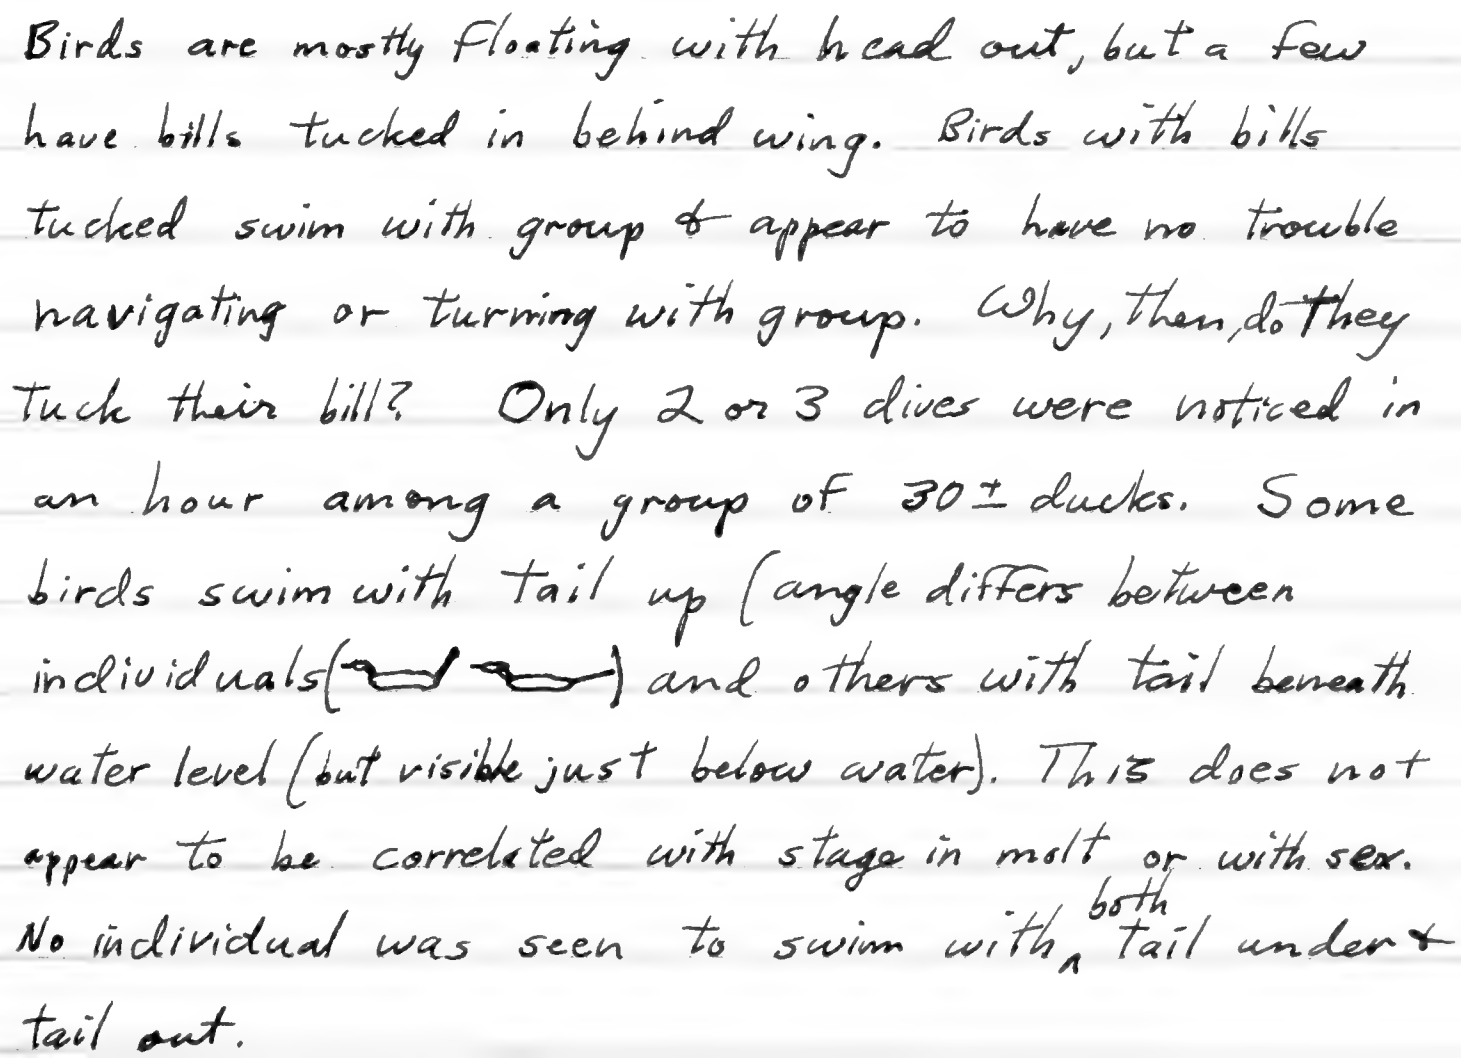 Birds are mostly floating with head out, but a few
have bills tucked in behind wing. Birds with bills
tucked swim with group & appear to have no trouble
navigating or turning with group. Why, then, do they
tuck their bill? Only 2 or 3 dives were noticed in
an hour among a group of 30± ducks. Some
birds swim with tail up (angle differs between
individuals( ) and others with tail beneath
water level (but visible just below water). This does not
appear to be correlated with stage in molt or with sex.
No individual was seen to swim with ^both tail under &
tail out.